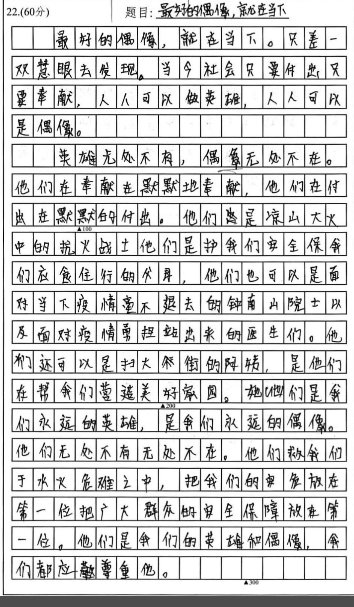 22.(60分) 题目：最好的偶像，就在当下
最好的偶像，就在当下。只差一
双慧眼去发现。当今社会只要付出只
要奉献，人人可以做英雄，人人可以
是偶像。
英雄无处不有，偶像无处不在。
他们在奉献在默默地奉献，他们在付
出在默默的付出。他们或是凉山大火
▲100
中的抗火战士他们是护我们安全保我
们衣食住行的分身，他们也可以是面
对当下疫情毫不退去的钟南山院士以
及面对疫情勇担站出来的医生们。他
们还可以是扫大街的阿姨，是他们
在帮我们营造美好家园。她他们是我
▲200
们永远的英雄，是我们永远的偶像。
他们无处不有无处不在。他们救我们
于水火危难之中，把我们的安危放在
第一位把广大群众的安全保障放在第
一位。他们是我们的英雄和偶像，我
们都应敬尊重他。
▲300